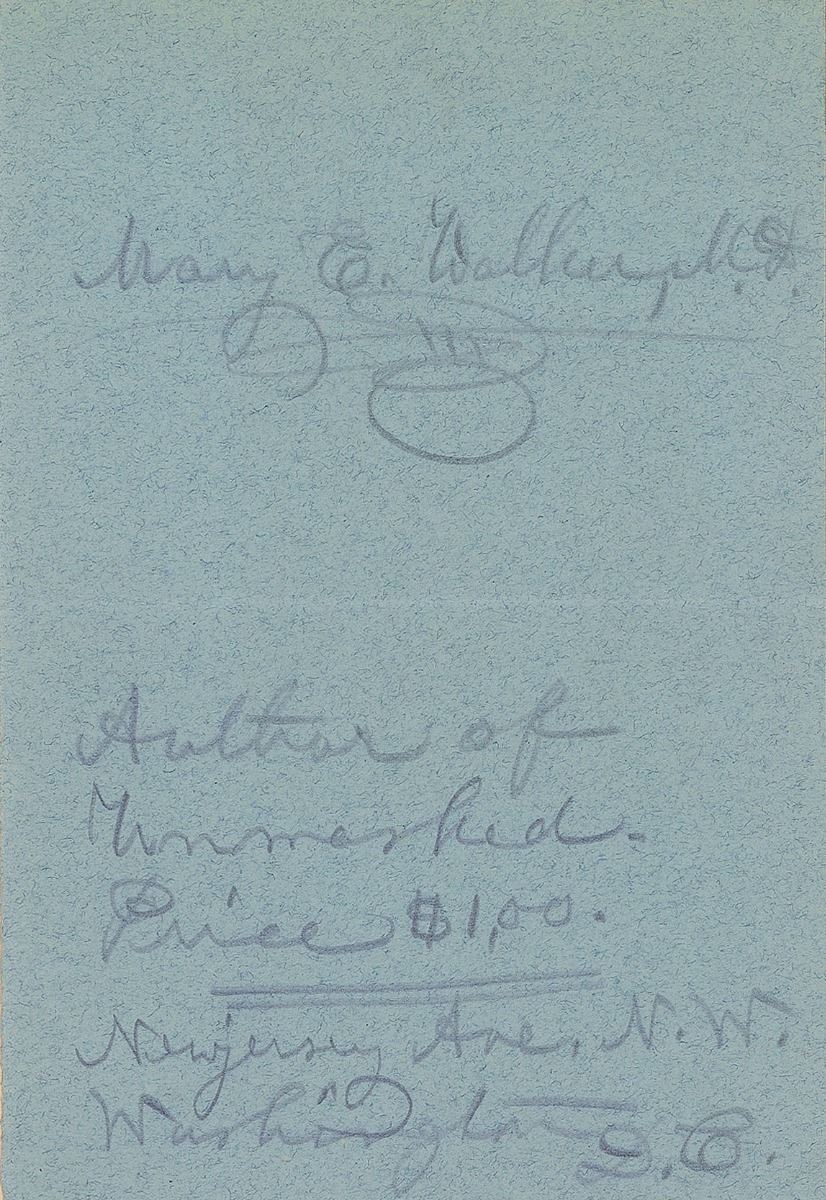 Mary E. Walker, M.D.
Author of
Unmasked.
Price $1,00.
New Jersey Ave. N.W.
Washington
D.C.